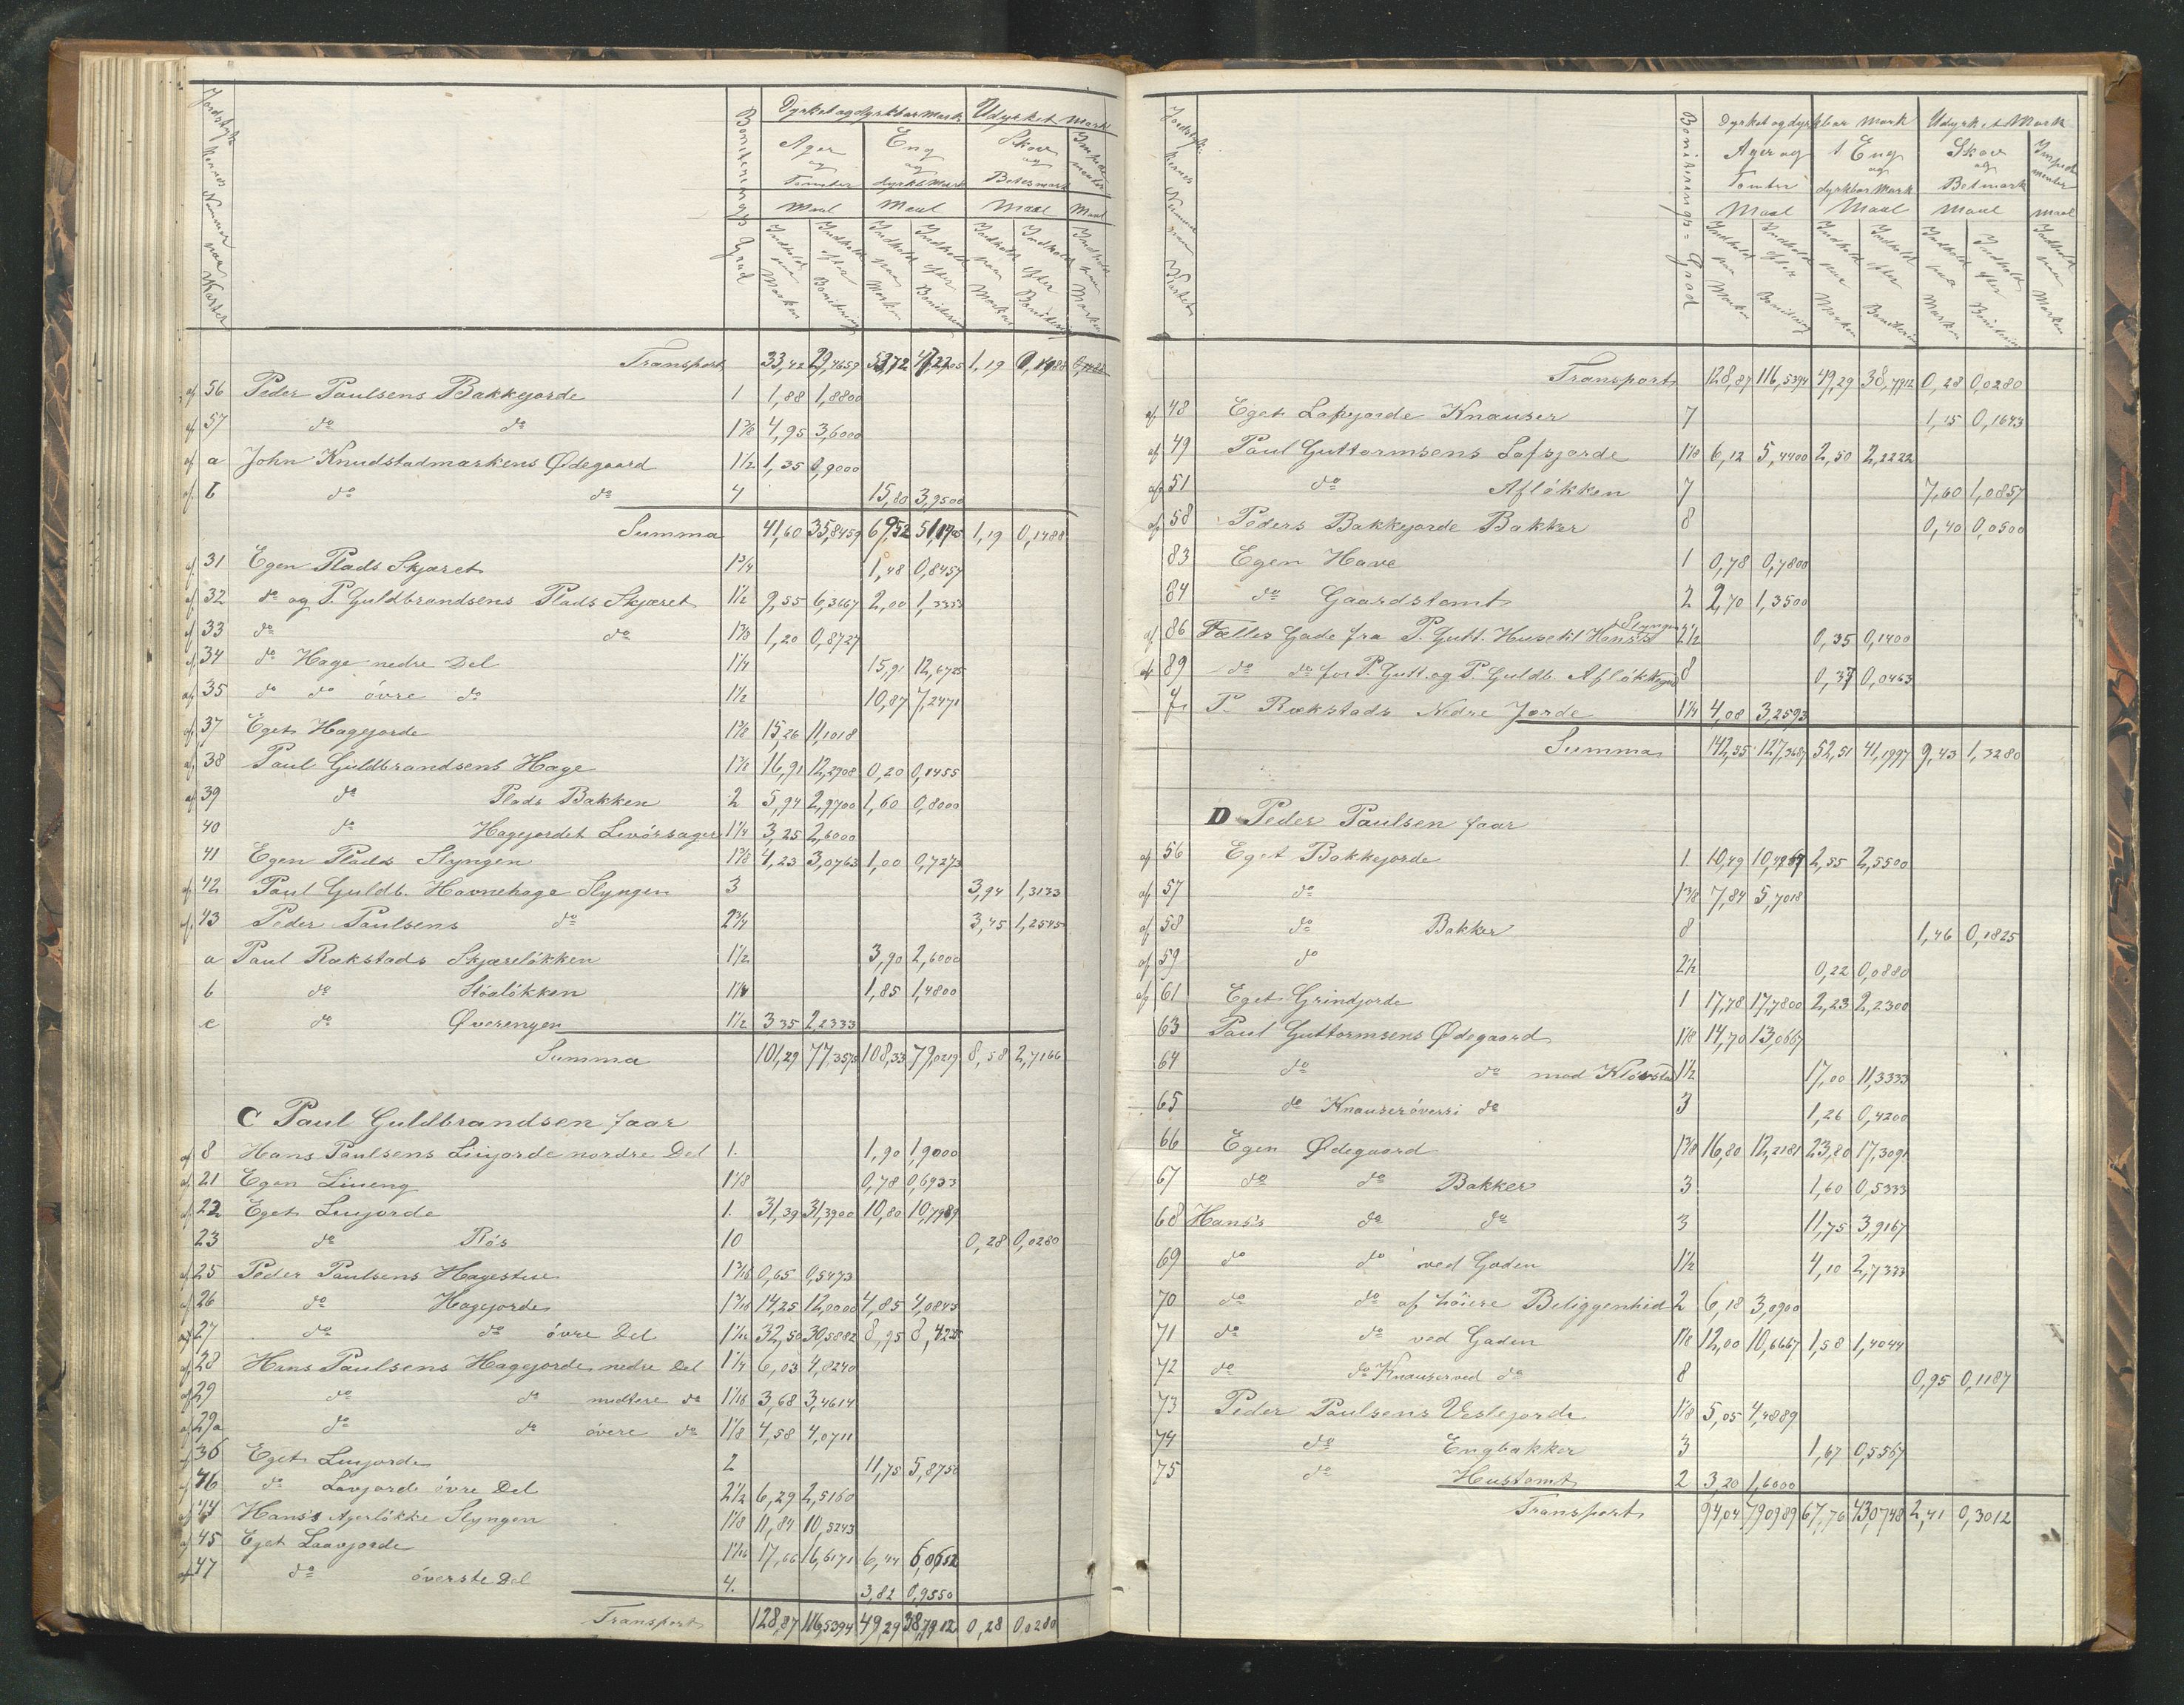 Jordstykkernes Nummer paa Kartet | Boniterings Grad | Dyrket og dyrkbar Mark | Udyrket Mark
Ager og Tomter | Eng og dyrkb. Mark | Skov og Betesmark | Impedimenter
Maal | Maal | Maal | Maal
Indhold paa Marken | Indhold efter Bonitering | Indhold paa Marken | Indhold efter Bonitering | Indhold paa Marken | Indhold efter Bonitering | Indhold paa Marken
Transport 33,42 29,4659 53,72 47,2205 1,19 0,1488
af 56 Peder Paulsens Bakkejorde 1 1,88 1,8800
af 57 do do 1 3/8 4,95 3,6000
af a John Knudstadmarkens Ødegaard 1 1/2 1,35 0,9000
af b do do 4 15,80 3,9500
Summa 41,60 35,8459 69,52 51,1705 1,19 0,1488
af 31 Egen Plads Skjæret 1 3/4 1,48 0,8457
af 32 do og P. Guldbrandsens Plads Skjæret 1 1/2 9,55 6,3667 2,00 1,3333
af 33 do do 1 3/8 1,20 0,8727
af 34 do Hage nedre Del 1 1/4 15,91 12,6725
af 35 do do övre do 1 1/2 10,87 7,2471
af 37 Eget Hagejorde 1 3/8 15,26 11,1018
af 38 Paul Guldbrandsens Hage 1 3/8 16,91 12,2908 0,20 0,1455
af 39 do Plads Bakken 2 5,94 2,9700 1,60 0,8000
40 do Hagejordet Levörsager 1 1/4 3,25 2,6000
41 Egen Plads Slyngen 1 3/8 4,23 3,0763 1,00 0,7273
af 42 Paul Guldb. Havnehage Slyngen 3 3,94 1,3133
af 43 Peder Paulsens do 2 3/4 3,45 1,2545
a Paul Rakstads Skjærelökken 1 1/2 3,90 2,6000
b do Stöalökken 1 1/4 1,85 1,4800
c do Øverengen 1 1/2 3,35 2,2333
Summa 101,29 77,3575 108,33 79,0219 8,58 2,7166
C Paul Guldbrandsen faar
af 8 Hans Paulsens Liujorde nordre Del 1. 1,90 1,9000
af 21 Egen Liueng 1 1/8 0,78 0,6933
af 22 Eget Liujorde 1. 31,39 31,3900 10,80 10,7989
23 do Rös 10 0,28 0,0280
af 25 Peder Paulsens Hagestue 1 3/16 0,65 0,5473
af 26 do Hagejorde 1 3/16 14,25 12,0000 4,85 4,0843
af 27 do do övre Del 1 1/16 32,50 30,5882 8,95 8,4235
af 28 Hans Paulsens Hagejorde nedre Del 1 1/4 6,03 4,8240
af 29 do do midtere do 1 1/16 3,68 3,4614
af 29a do do övere do 1 1/8 4,58 4,0711
af 36 Eget Liujorde 2 11,75 5,8750
af 46 do Lavjorde övre Del 2 1/2 6,29 2,5160
af 44 Hans's Agerlökke Slyngen 1 1/8 11,84 10,5243
af 45 Eget Laavjorde 1 1/16 17,66 16,6171 6,44 6,0612
af 47 do överste Del 4. 3,82 0,9550
Transport 128,87 116,5394 49,29 38,7912 0,28 0,0280
Jordstykkernes Nummer paa Kartet | Boniterings-Grad | Dyrket og dyrkbar Mark | Udyrket Mark
Ager og Tomter | Eng og dyrkbar Mark | Skov og Betmark | Impedimenter
Maal | Maal | Maal | Maal
Indhold paa Marken | Indhold efter Bonitering | Indhold paa Marken | Indhold efter Bonitering | Indhold paa Marken | Indhold efter Bonitering | Indhold paa Marken
Transport 128,87 116,5394 49,29 38,7912 0,28 0,0280
af 48 Eget Lafvjorde Knauser 7 1,15 0,1643
af 49 Paul Guttormsens Lafsjorde 1 1/8 6,12 5,4400 2,50 2,2222
af 51 do Aflökken 7 7,60 1,0857
af 58 Peders Bakkejorde Bakker 8 0,40 0,0500
83 Egen Have 1 0,78 0,7800
84 do Gaardstomt 2 2,70 1,3500
af 86 Fælles Gade fra P. Gutt. Huse til Hans's Slyngen 2 1/2 0,35 0,1400
af 89 do do for P. Gutt. og P. Guldb. Aflökken 8 0,37 0,0463
f. P. Rakstads Nedre Jorde 1 1/4 4,08 3,2593
Summa 142,55 127,3687 52,51 41,1997 9,43 1,3280
D Peder Paulsen faar
af 56 Eget Bakkejorde 1 10,49 10,4867 2,55 2,5500
af 57 do 1 3/8 7,84 5,7018
af 58 do Bakker 8 1,46 0,1825
af 59 do 2 1/2 0,22 0,0880
af 61 Eget Grindjorde 1 17,78 17,7800 2,23 2,2300
63 Paul Guttormsens Ødegaard 1 1/8 14,70 13,0667
64 do do mod Klövstad 1 1/2 17,00 11,3333
65 do Knauser överst i do 3 1,26 0,4200
66 Egen Ødegaard 1 3/8 16,80 12,2181 23,80 17,3091
67 do do Bakker 3 1,60 0,5333
68 Hans's do do 3 11,75 3,9167
69 do do ved Gaden 1 1/2 4,10 2,7333
70 do do af höiere Beliggenhed 2 6,18 3,0900
71 do do ved Gaden 1 1/8 12,00 10,6667 1,58 1,4044
72 do do Knauser ved do 8 0,95 0,1187
73 Peder Paulsens Veslejorde 1 1/8 5,05 4,4889
74 do Engbakker 3 1,67 0,5567
75 do Hustomt 2 3,20 1,6000
Transport 94,04 79,0989 67,76 43,0748 2,41 0,3012